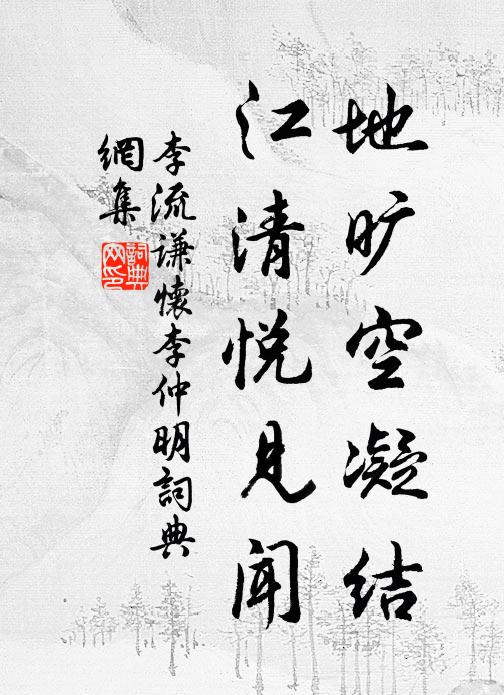 地旷空凝结
江清悦见闻
李流谦懷李仲明詞典
網集
詞典
网印